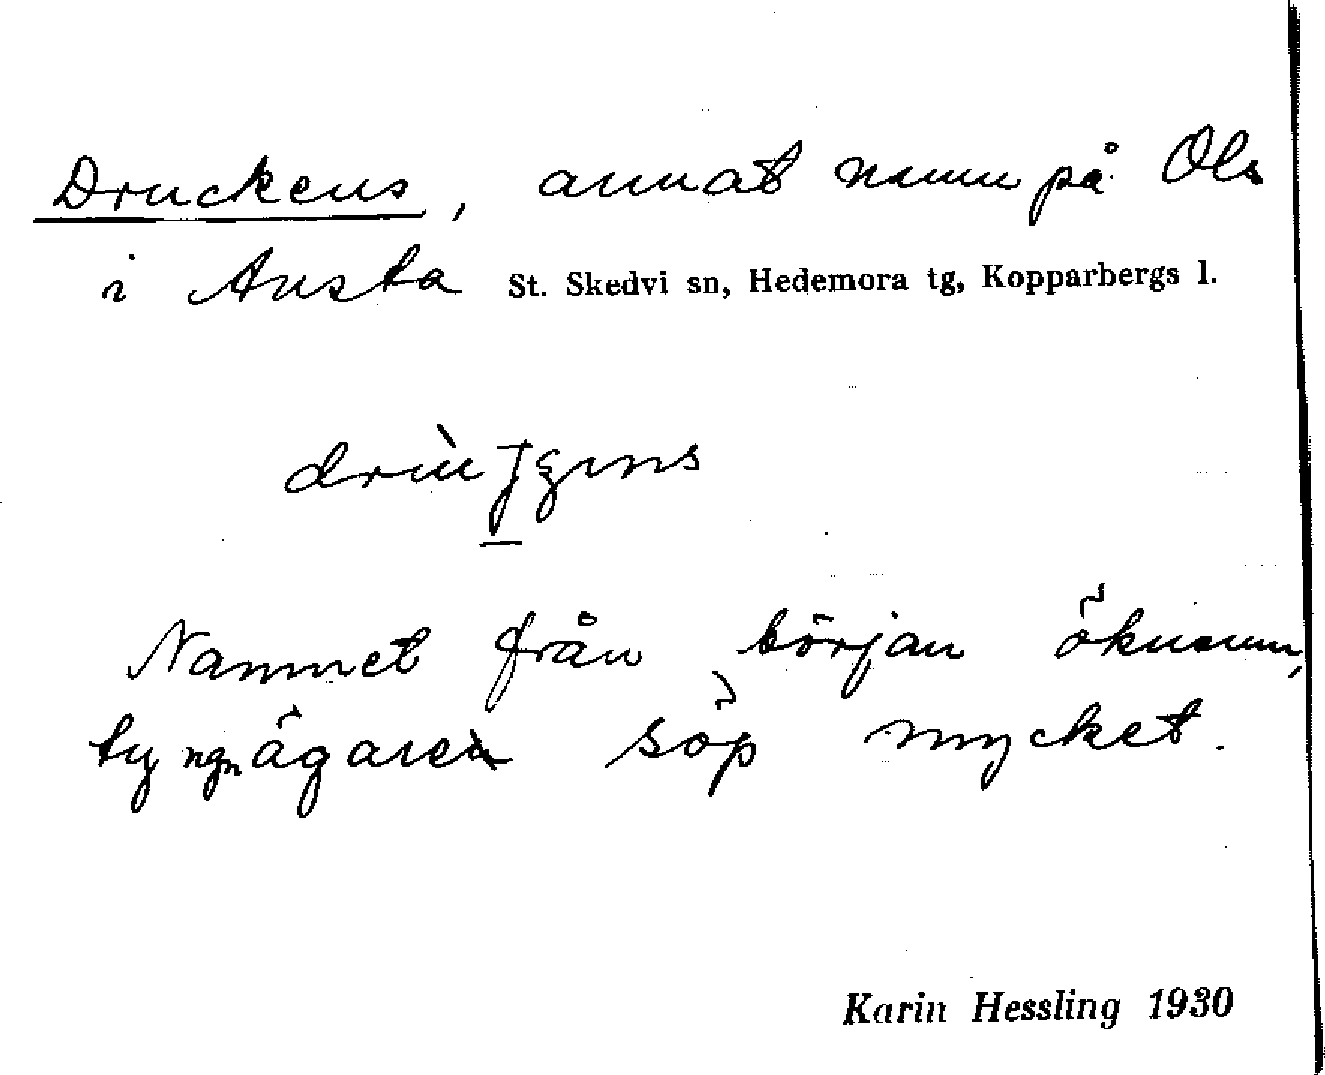 Druckens, annat namn på Ols
i Austa St. Skedvi sn, Hedemora tg, Kopparbergs l.
Namnet från början öknamn,
ty ngn ägare söp mycket.
Karin Hessling 1930